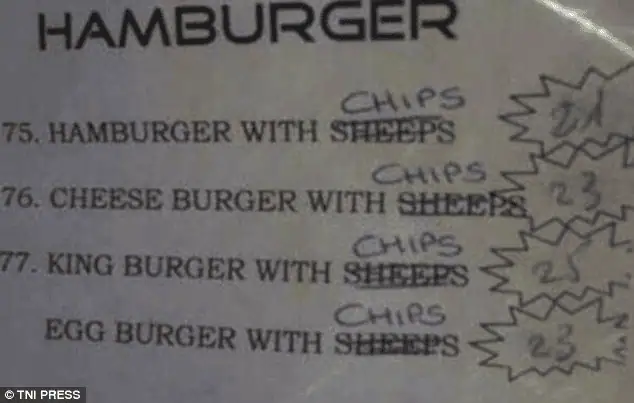 HAMBURGER
CHIPS
75. HAMBURGER WITH SHEEPS 21
CHIPS
76. CHEESE BURGER WITH SHEEPS 23
CHIPS
77. KING BURGER WITH SHEEPS 25
CHIPS
EGG BURGER WITH SHEEPS 23
© TNI PRESS